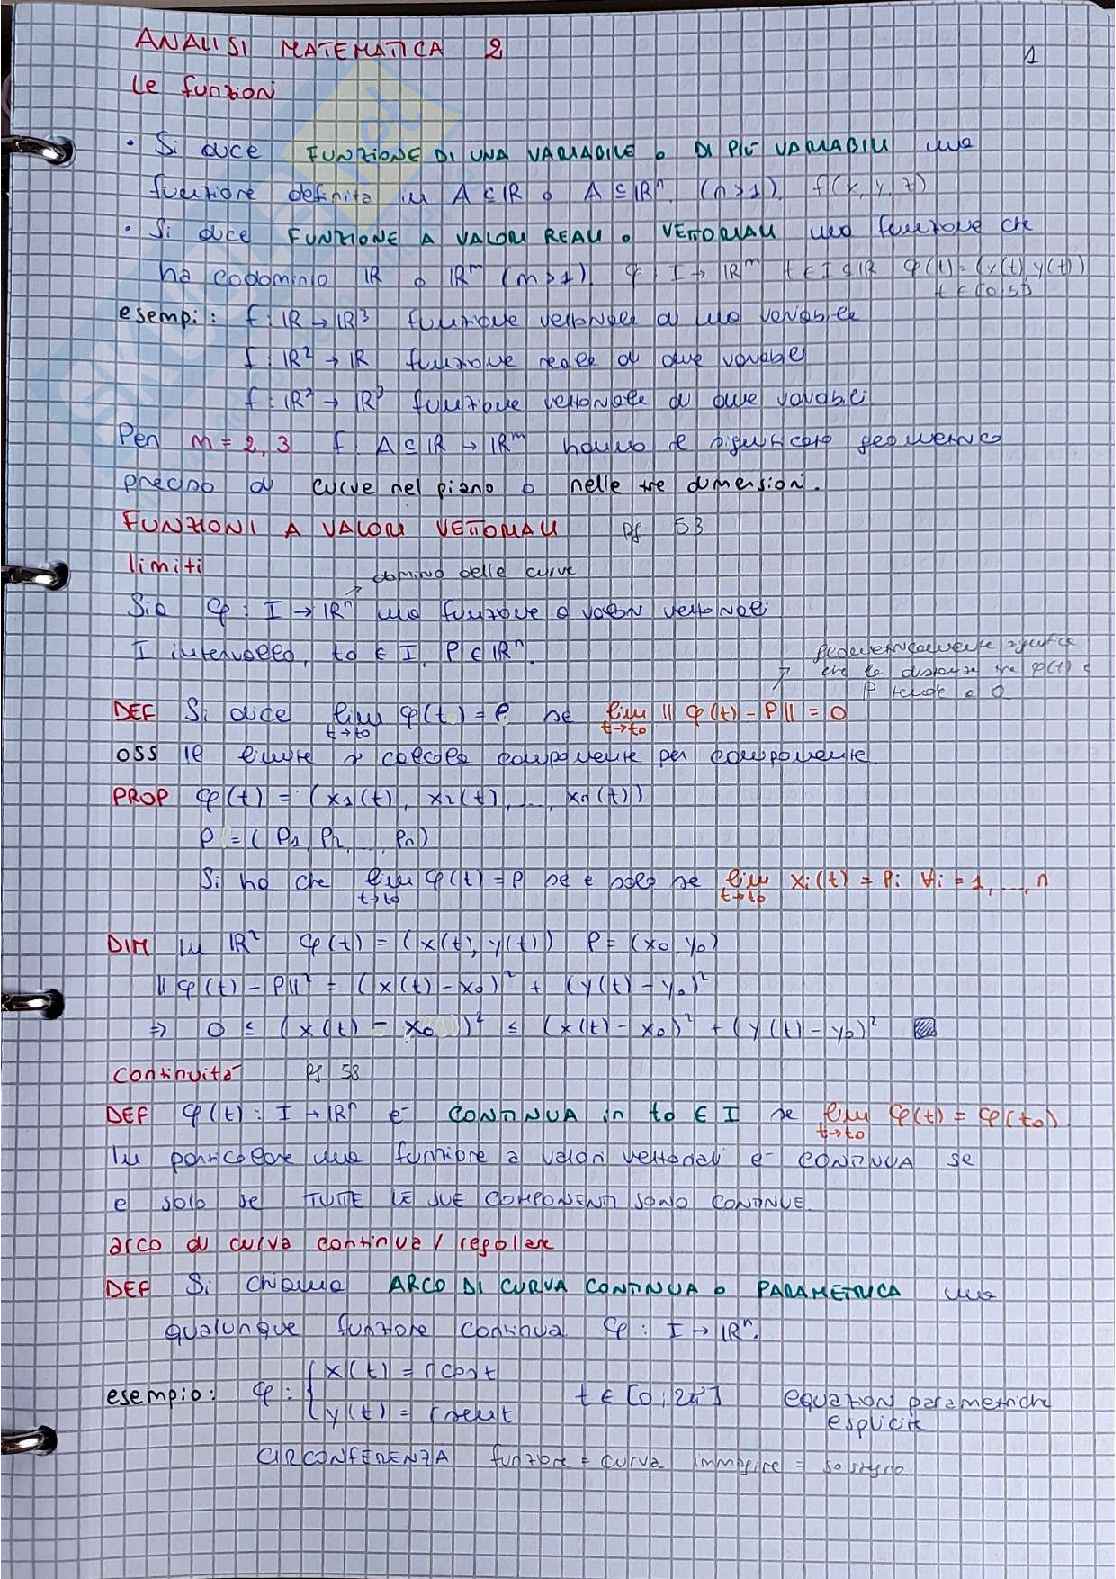 ANALISI MATEMATICA 2
1
Le funzioni
• Si dice FUNZIONE DI UNA VARIABILE o DI PIÙ VARIABILI una
funzione definita in A ⊆ ℝ o A ⊆ ℝⁿ (n>1). f(x,y,z)
• Si dice FUNZIONE A VALORI REALI o VETTORIALI una funzione che
ha codominio ℝ o ℝᵐ (m>1). φ: I → ℝᵐ t ∈ I ⊆ ℝ φ(t) = (x(t), y(t))
t ∈ [0,5]
esempi: f: ℝ → ℝ³ funzione vettoriale di una variabile
f: ℝ² → ℝ funzione reale di due variabili
f: ℝ² → ℝ³ funzione vettoriale di due variabili
Per m = 2, 3 f: A ⊆ ℝ → ℝᵐ hanno il significato geometrico
preciso di curve nel piano o nelle tre dimensioni.
FUNZIONI A VALORI VETTORIALI pg 53
limiti
dominio della curva
Sia φ: I → ℝⁿ una funzione a valori vettoriali
I intervallo, t₀ ∈ I, P ∈ ℝⁿ.
geometricamente significa
che la distanza tra φ(t) e
P tende a 0
DEF Si dice lim t→t₀ φ(t) = P se lim t→t₀ || φ(t) - P || = 0
OSS il limite si calcola componente per componente
PROP φ(t) = (x₁(t), x₂(t), ..., xₙ(t))
P = (P₁, P₂, ..., Pₙ)
Si ha che lim t→t₀ φ(t) = P se e solo se lim t→t₀ xᵢ(t) = Pᵢ ∀i = 1, ..., n
DIM In ℝ² φ(t) = (x(t), y(t)) P = (x₀, y₀)
|| φ(t) - P ||² = (x(t) - x₀)² + (y(t) - y₀)²
⇒ 0 ≤ (x(t) - x₀)² ≤ (x(t) - x₀)² + (y(t) - y₀)²
continuità pg 58
DEF φ(t): I → ℝⁿ è CONTINUA in t₀ ∈ I se lim t→t₀ φ(t) = φ(t₀)
In particolare una funzione a valori vettoriali è CONTINUA se
e solo se TUTTE LE SUE COMPONENTI SONO CONTINUE.
arco di curva continua / regolare
DEF Si chiama ARCO DI CURVA CONTINUA o PARAMETRICA una
qualunque funzione continua φ: I → ℝⁿ.
esempio: φ: { x(t) = r cos t
y(t) = r sen t
t ∈ [0; 2π] equazioni parametriche
esplicite
CIRCONFERENZA funzione = curva immagine = sostegno